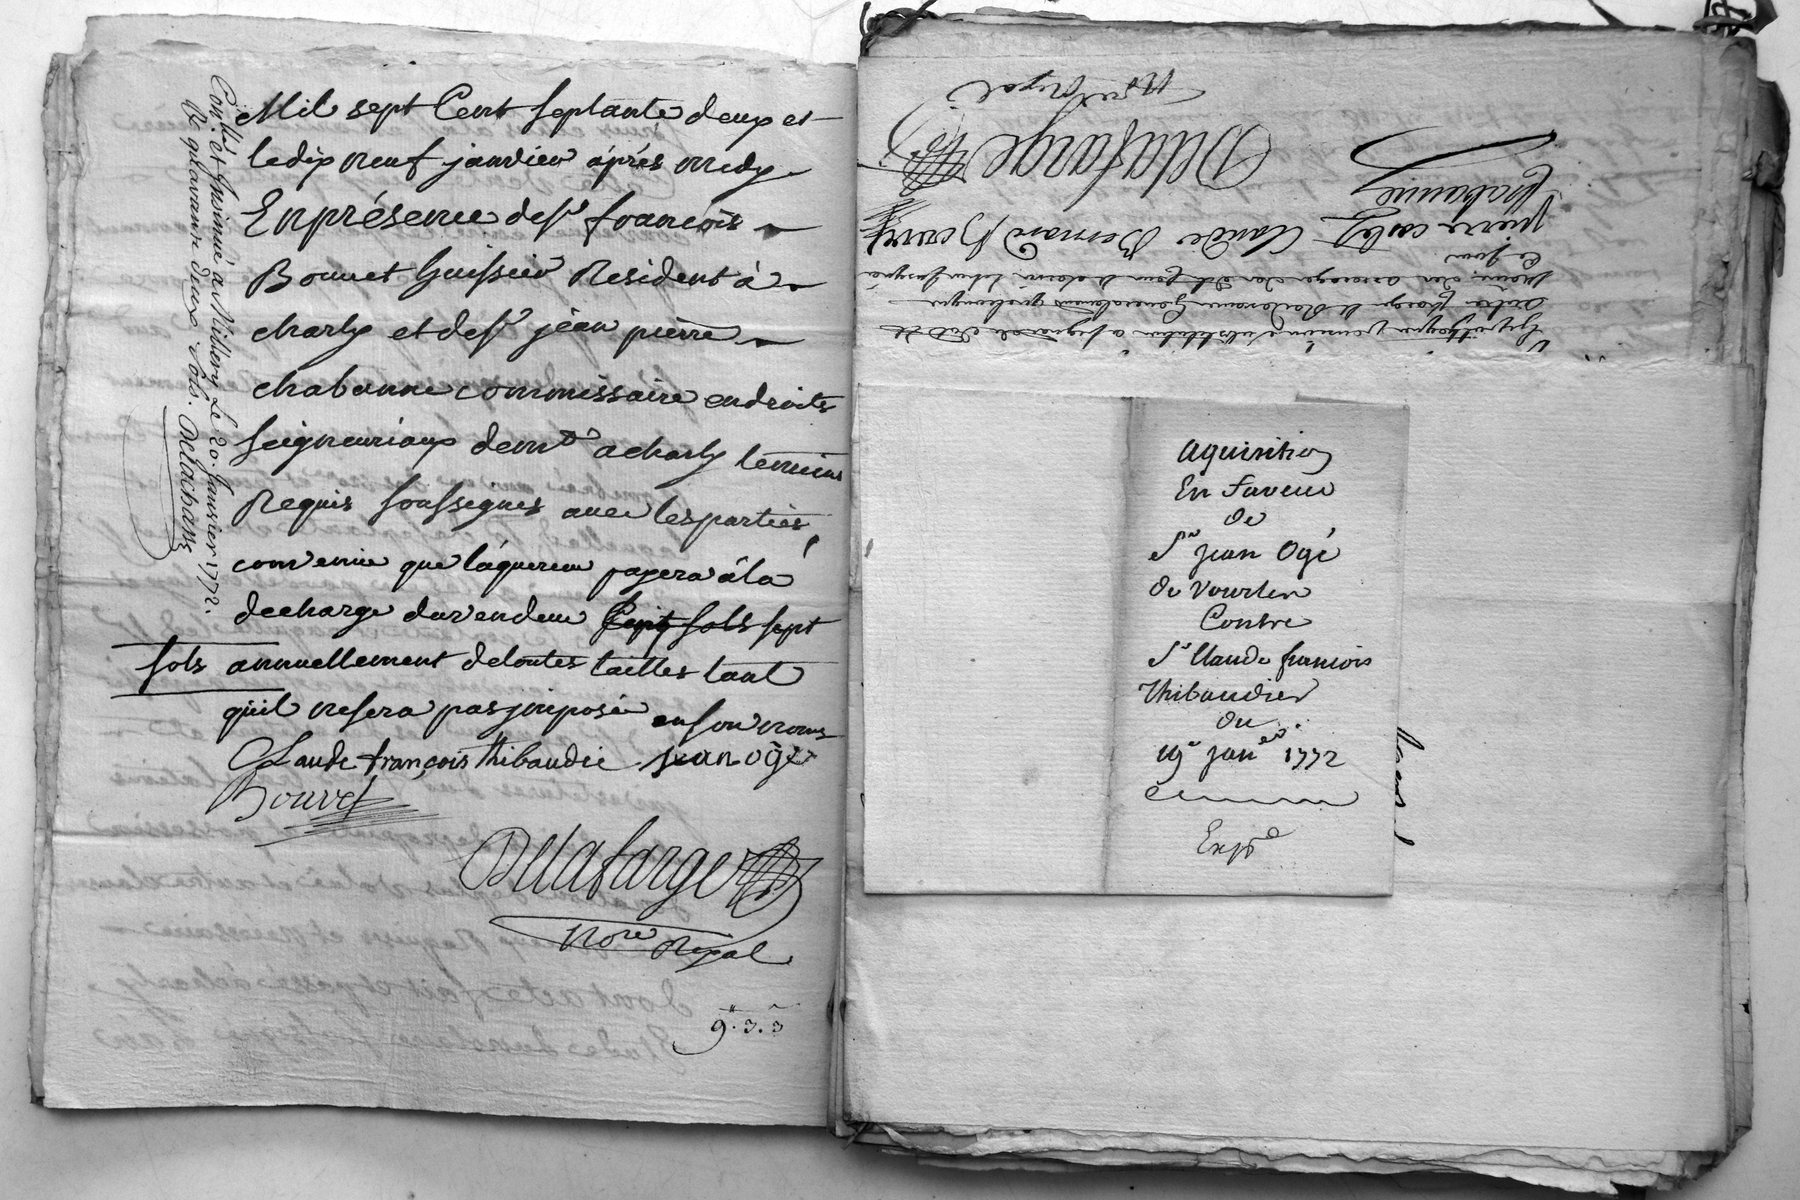 Mil sept Cent septante deux et
le dix neuf janvier après midy
En présence de sr françois
Bouvet huissier Resident à
charly et de sr jean pierre
chabanne commissaire en droits
seigneuriaux demt a charly temoins
Requis soussignes avec les parties
convenu que l'aquereur payera à la
decharge du vendeur sept sols sept
sols annuellement de toutes tailles tant
qu'il ne sera pas jmposé en son nom
Claude françois thibaudie jean ogé
Bouvet
Delafarge
Nore Royal
9. 3. 3
Conlé et Insinué à Millery Le 20. Janvier 1772.
Rç quarante deux sols. Delachans
Nore Royal
Delafarge
chabanne
pierre Claude Bernard Bouvet
ce jour
Aquisition
En faveur
de
Sr jean Ogé
de Vourles
Contre
Sr Claude françois
Thibaudier
du
19e janer 1772
Expd